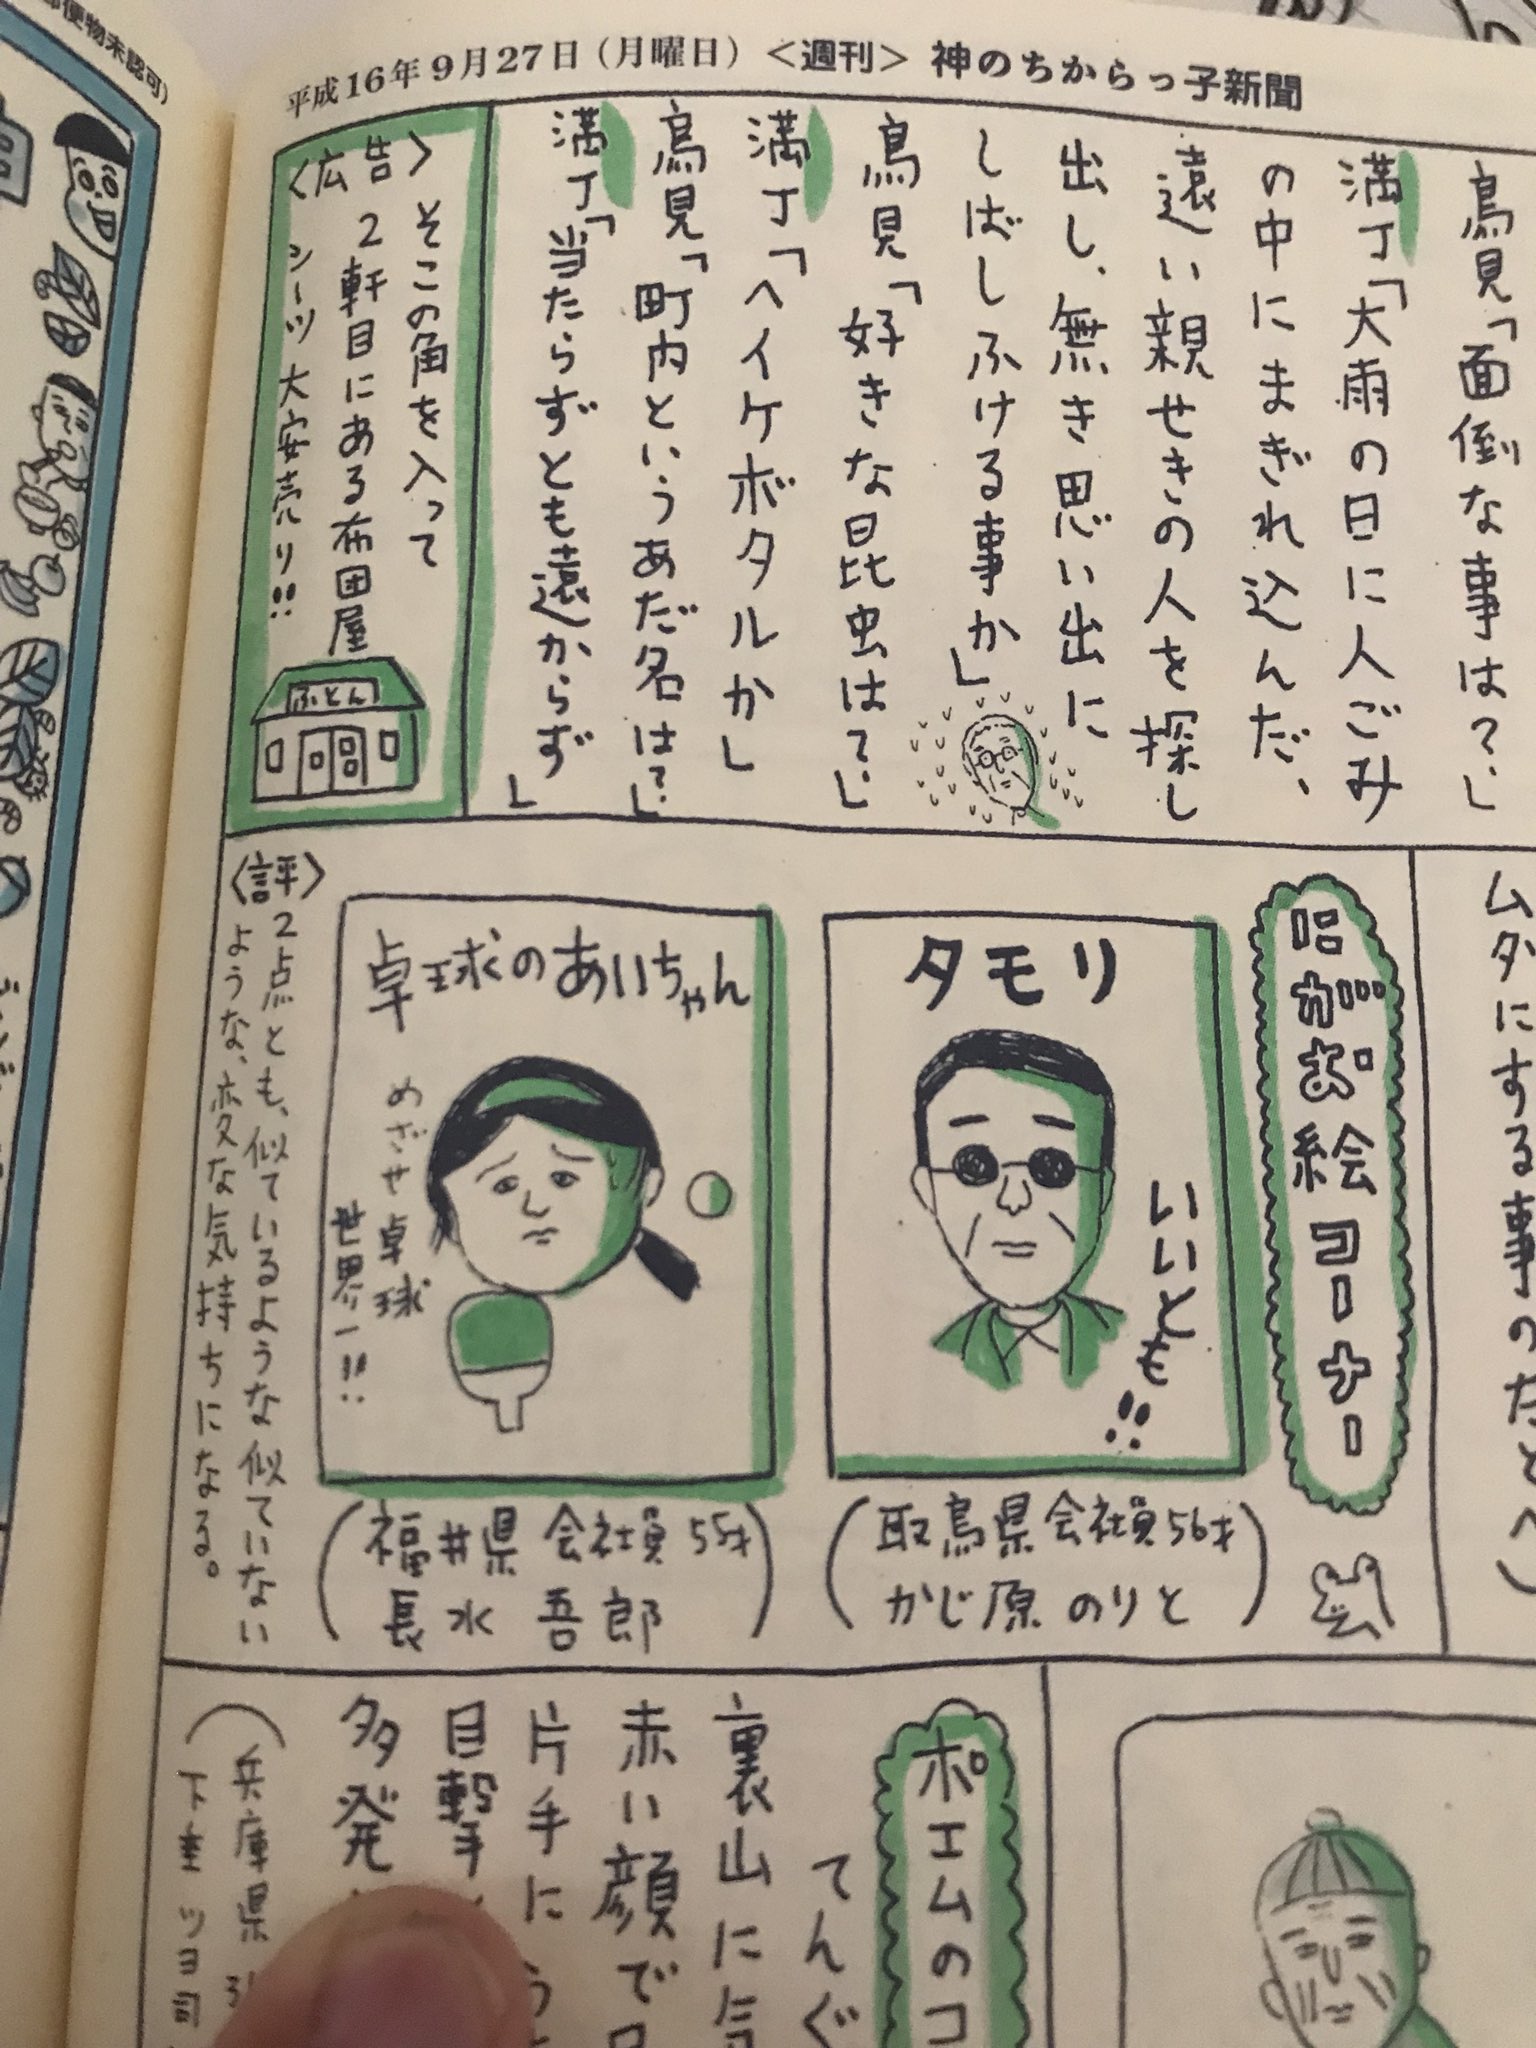 郵便物未認可)
平成16年9月27日(月曜日)<週刊>神のちからっ子新聞
鳥見「面倒な事は?」
満丁「大雨の日に人ごみ
の中にまぎれ込んだ、
遠い親せきの人を探し
出し、無き思い出に
しばしふける事か」
鳥見「好きな昆虫は?」
満丁「ヘイケボタルか」
鳥見「町内というあだ名は?」
満丁「当たらずとも遠からず」
〈広告〉
そこの角を入って
2軒目にある布団屋
シーツ大安売り!!
ふとん
ムダにする事のたとへ)
にがお絵コーナー
タモリ
いいとも!!
(取鳥県会社員56才
かじ原のりと)
卓球のあいちゃん
めざせ卓球
世界一!!
(福井県会社員55才
長水吾郎)
〈評〉2点とも、似ているような似ていない
ような、変な気持ちになる。
ポエムのコ
てんぐ
裏山に気
赤い顔で
片手にう
目撃
多発
(兵庫県